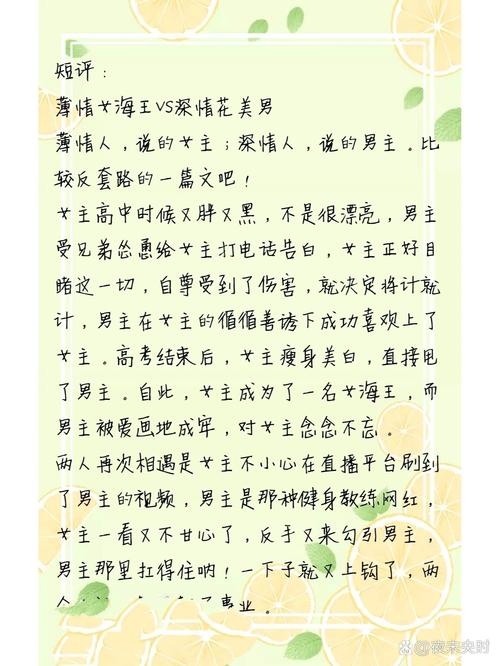 短评：
薄情女海王VS深情花美男
薄情人，说的女主；深情人，说的男主。比
较反套路的一篇文吧！
女主高中时候又胖又黑，不是很漂亮，男主
受兄弟怂恿给女主打电话告白，女主正好目
睹这一切，自尊受到了伤害，就决定将计就
计，男主在女主的循循善诱下成功喜欢上了
女主。高考结束后，女主瘦身美白，直接甩
了男主。自此，女主成为了一名女海王，而
男主被爱画地成牢，对女主念念不忘。
两人再次相遇是女主不小心在直播平台刷到
了男主的视频，男主是那种健身教练网红，
女主一看又不甘心了，反手又来勾引男主，
男主那里扛得住呐！一下子就又上钩了，两
人事业。
@夜未央时